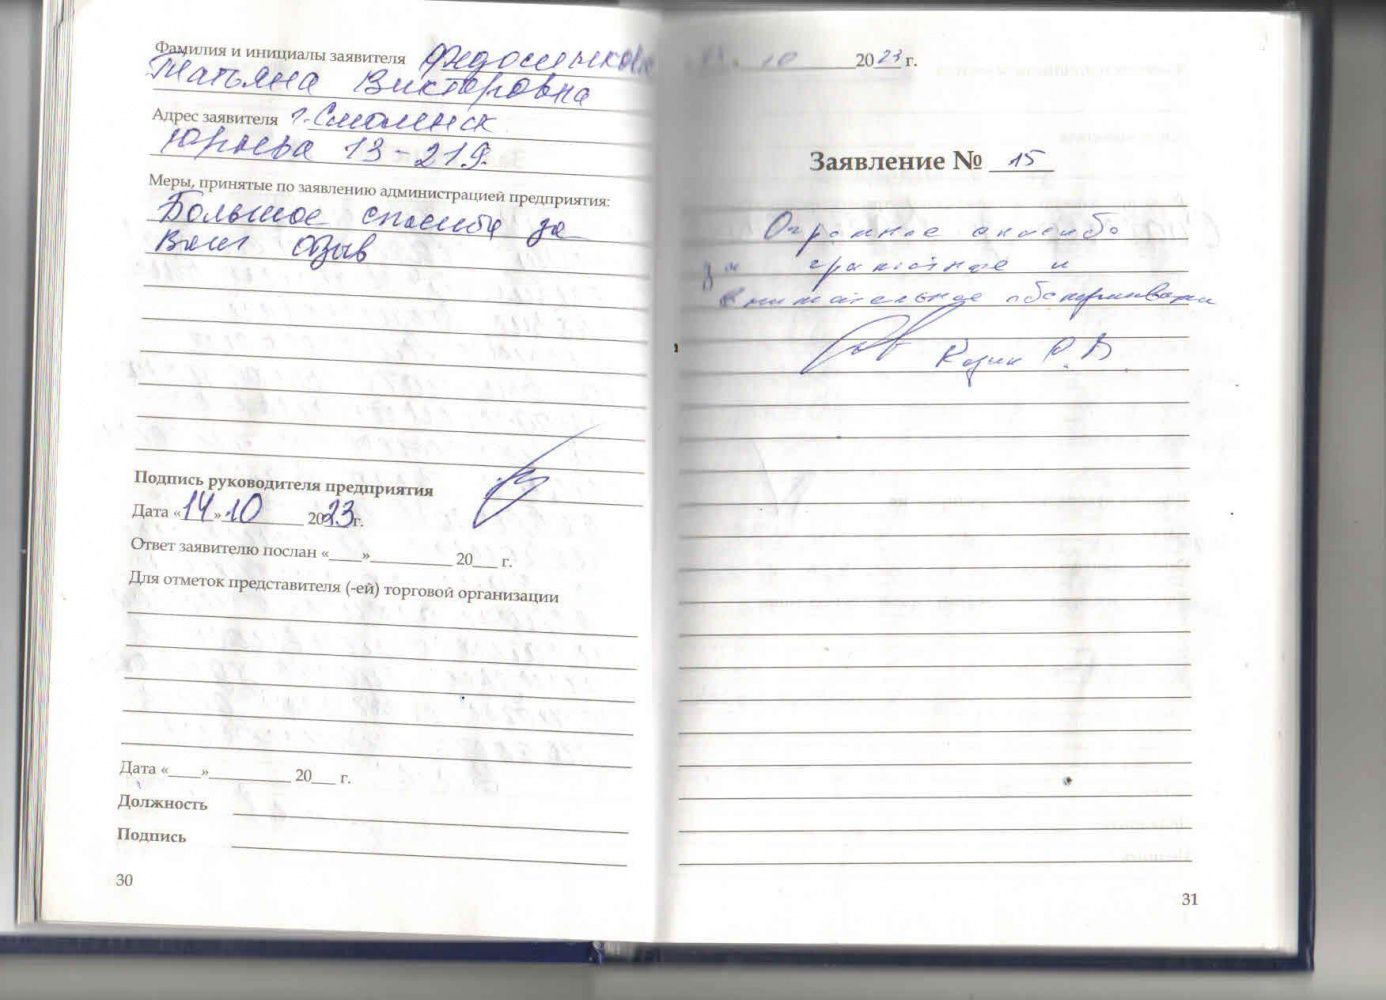 Фамилия и инициалы заявителя
Татьяна Викторовна
Адрес заявителя г. Смоленск
Юрьева 13-219.
Меры, принятые по заявлению администрацией предприятия:
Большое спасибо за
Ваш отзыв
Подпись руководителя предприятия
Дата «14» 10 2023 г.
Ответ заявителю послан «____»__________ 20___ г.
Для отметок представителя (-ей) торговой организации
Дата «____»__________ 20___ г.
Должность
Подпись
30
10 2023 г.
Заявление № 15
Огромное спасибо
за грамотное и
внимательное обслуживание
31